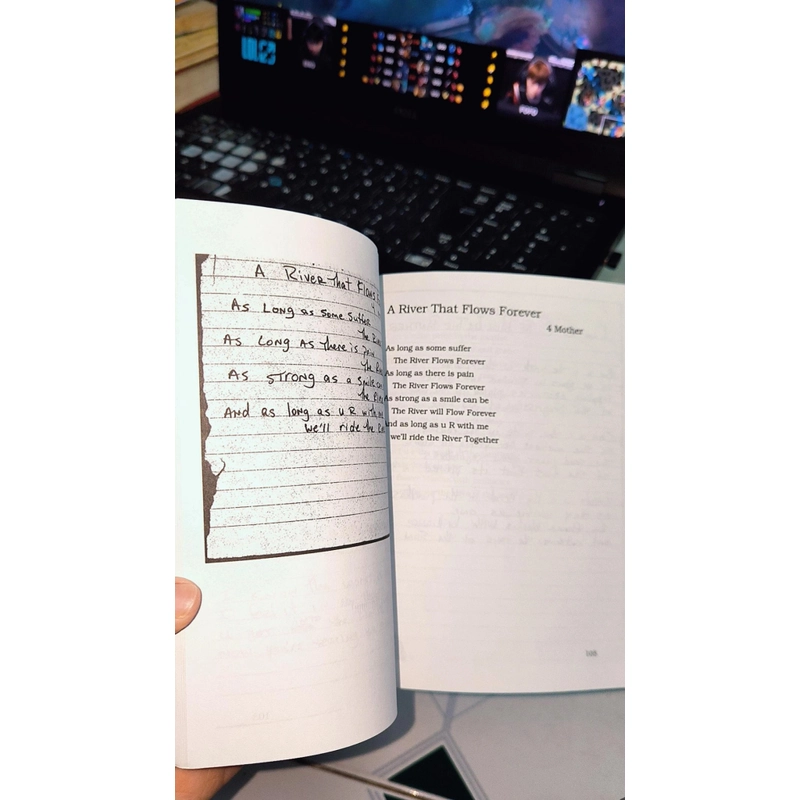 A River That Flows
As Long as some Suffer
The
As Long As there is pain
the
As strong as a smile can
the River
And as long as u R with me
we'll ride the
A River That Flows Forever
4 Mother
As long as some suffer
The River Flows Forever
As long as there is pain
The River Flows Forever
As strong as a smile can be
The River will Flow Forever
And as long as u R with me
we'll ride the River Together